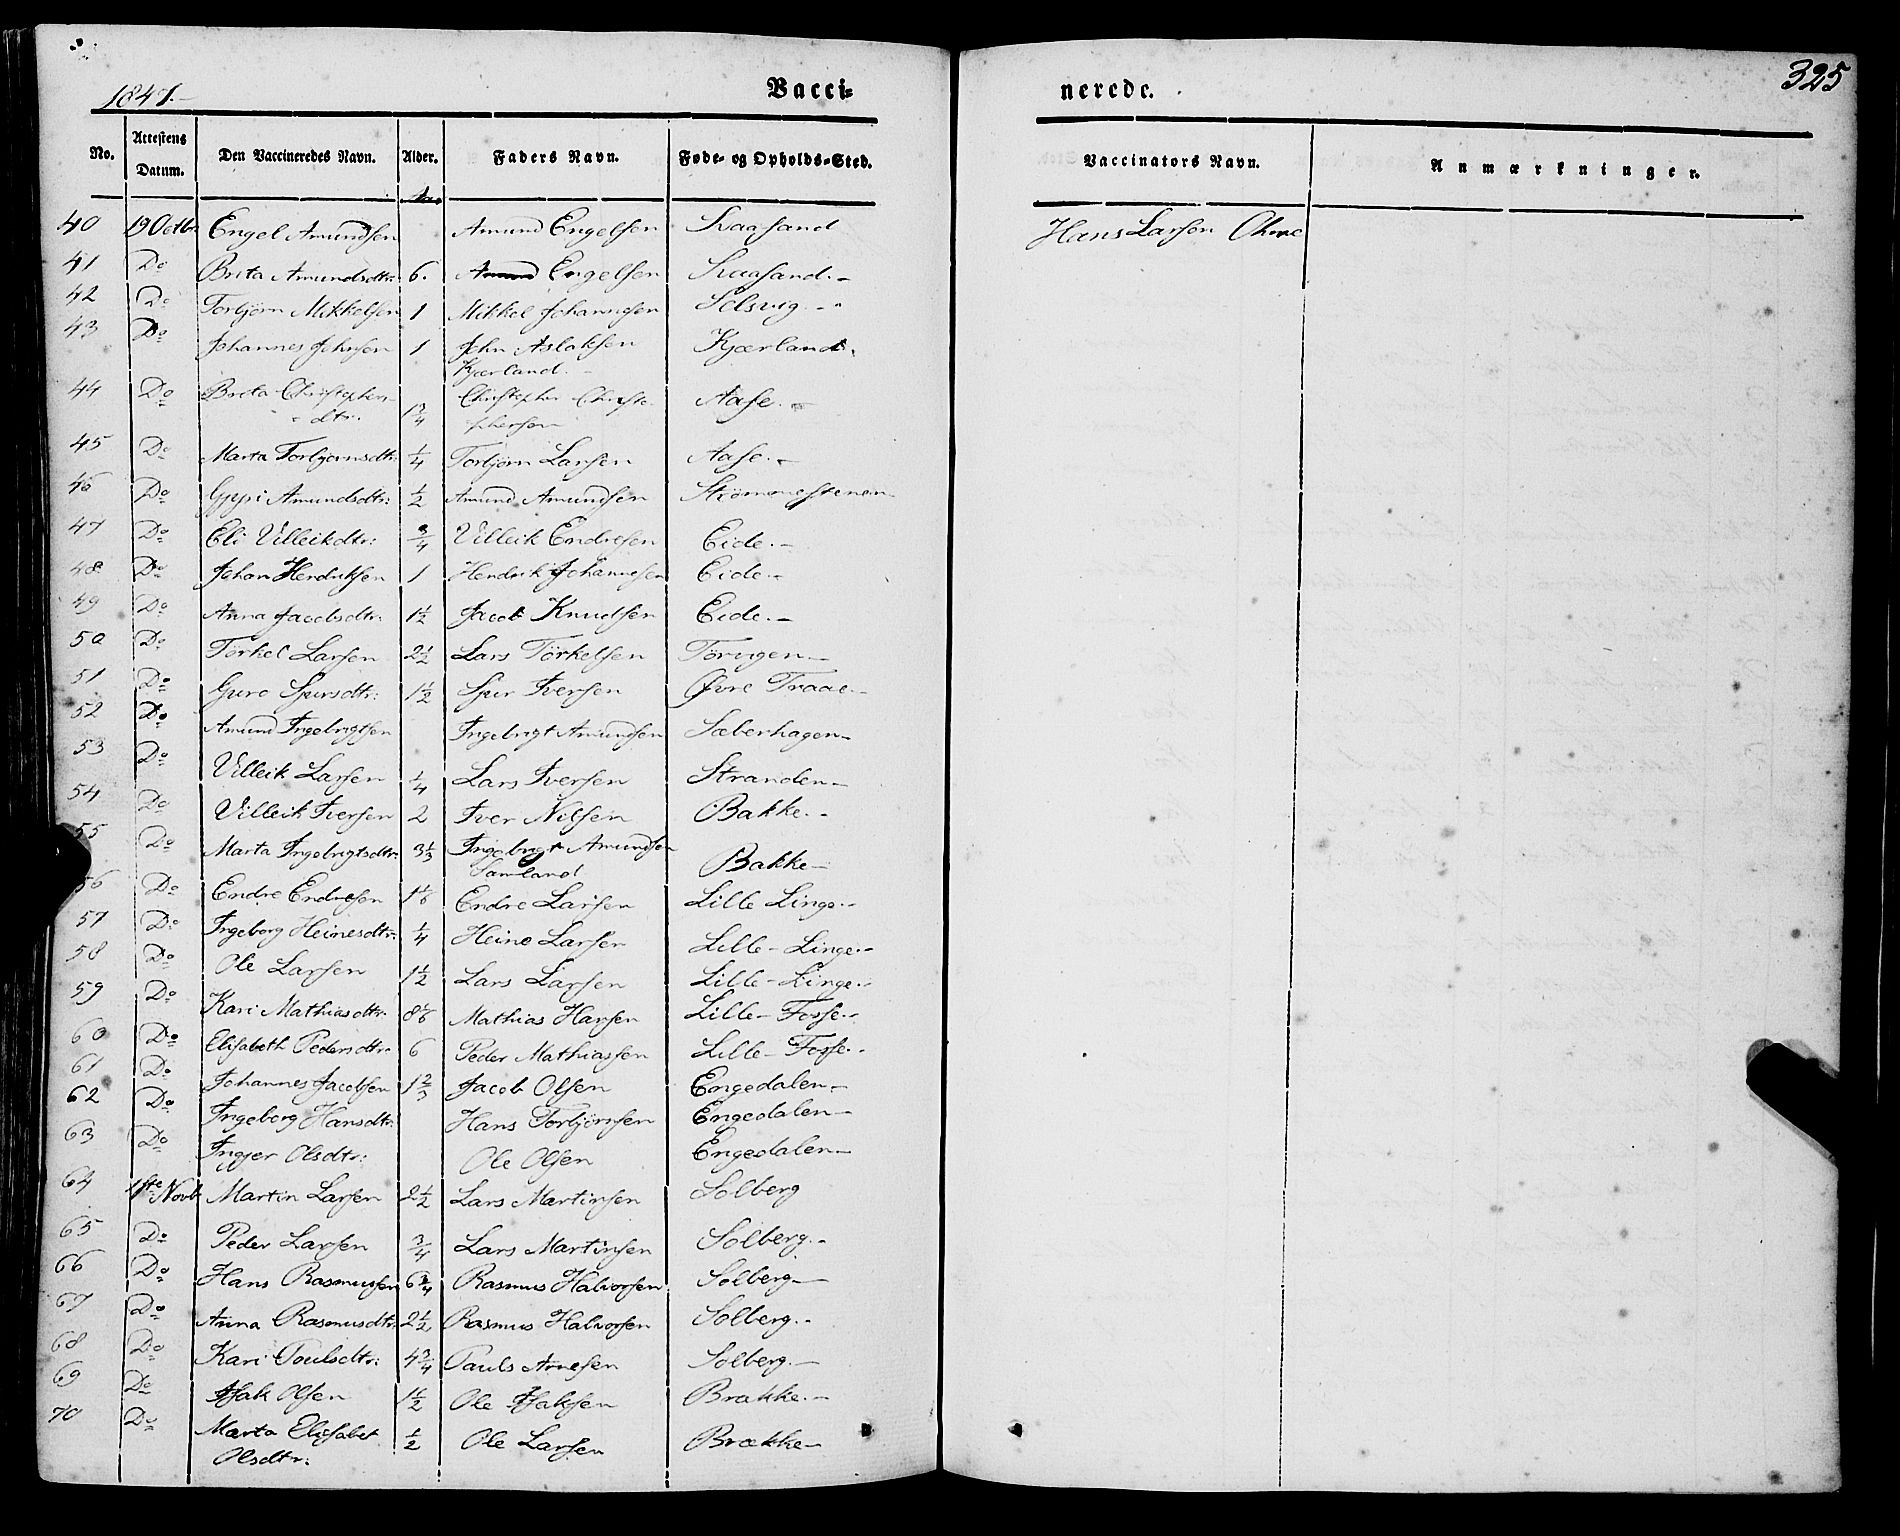 1847.
Vacci-
nerede.
325
No. Attestens Datum. Den Vaccineredes Navn. Alder. Faders Navn. Føde- og Opholds-Sted. Vaccinators Navn. Anmærkninger.
40 19 Octbr Engel Amundsen Amund Engelsen Kaasand Hans Larsen
41 Do Brita Amundsdtr: 6. Amund Engelsen Kaasand.-
42 Do Torbjørn Mikkelsen 1 Mikkel Johannesen Selsvig.-
43 Do Johannes Johnsen 1 John Aslaksen Kjærland.
Kjærland.
44 Do Brita Christophers- 1 3/4 Christopher Christo- Aase.-
dtr. phersen
45 Do Marta Torbjørnsdtr: 1/4 Torbjørn Larsen Aase.-
46 Do Gyri Amundsdtr: 1/2 Amund Amundsen Strømmestenen
47 Do Eli Villeikdtr: 3/4 Villeik Endresen Eide.-
48 Do Johan Hendriksen 1 Hendrik Johannesen Eide.-
49 Do Anna Jacobsdtr: 1 1/2 Jacob Knudsen Eide.-
50 Do Törkel Larsen 2 1/2 Lars Törkelsen
51 Do Guro Spursdtr: 1 1/2 Spur Iversen Øvre Traae.-
52 Do Amund Ingebrigtsen Ingebrigt Amundsen Sæberhagen-
53 Do Villeik Larsen 1/4 Lars Iversen Stranden-
54 Do Villeik Iversen 2 Iver Nilsen Bakke.-
55 Do Marta Ingebrigtsdtr: 3 1/3 Ingebrigt Amundsen Bakke-
Samland
56 Do Endre Endresen 1 1/6 Endre Larsen Lille Linge.-
57 Do Ingeborg Heinesdtr: 1/4 Heine Larsen Lille-Linge.-
58 Do Ole Larsen 1 1/2 Lars Larsen Lille-Linge.-
59 Do Kari Mathiasdtr. 8 1/6 Mathias Hansen Lille-Fosse.-
60 Do Elisabeth Pedersdtr. 6 Peder Mathiassen Lille-Fosse.-
61 Do Johannes Jacobsen 1 2/3 Jacob Olsen Engedalen-
62 Do Ingeborg Hansdtr: Hans Torbjörnsen Engedalen-
63 Do Ingjer Olsdtr: Ole Olsen Engedalen-
64 1ste Novb Martin Larsen 2 1/2 Lars Martinsen Solberg
65 Do Peder Larsen 3/4 Lars Martinsen Solberg.-
66 Do Hans Rasmussen 6 3/4 Rasmus Halvorsen Solberg-
67 Do Anna Rasmusdtr. 2 1/2 Rasmus Halvorsen Solberg.-
68 Do Kari Poulsdtr: 4 3/4 Pauls Arnesen Solberg.-
69 Do Isak Olsen 1 1/2 Ole Isaksen Brakke.-
70 Do Marta Elisabet 1/2 Ole Larsen Brække-
Olsdtr: